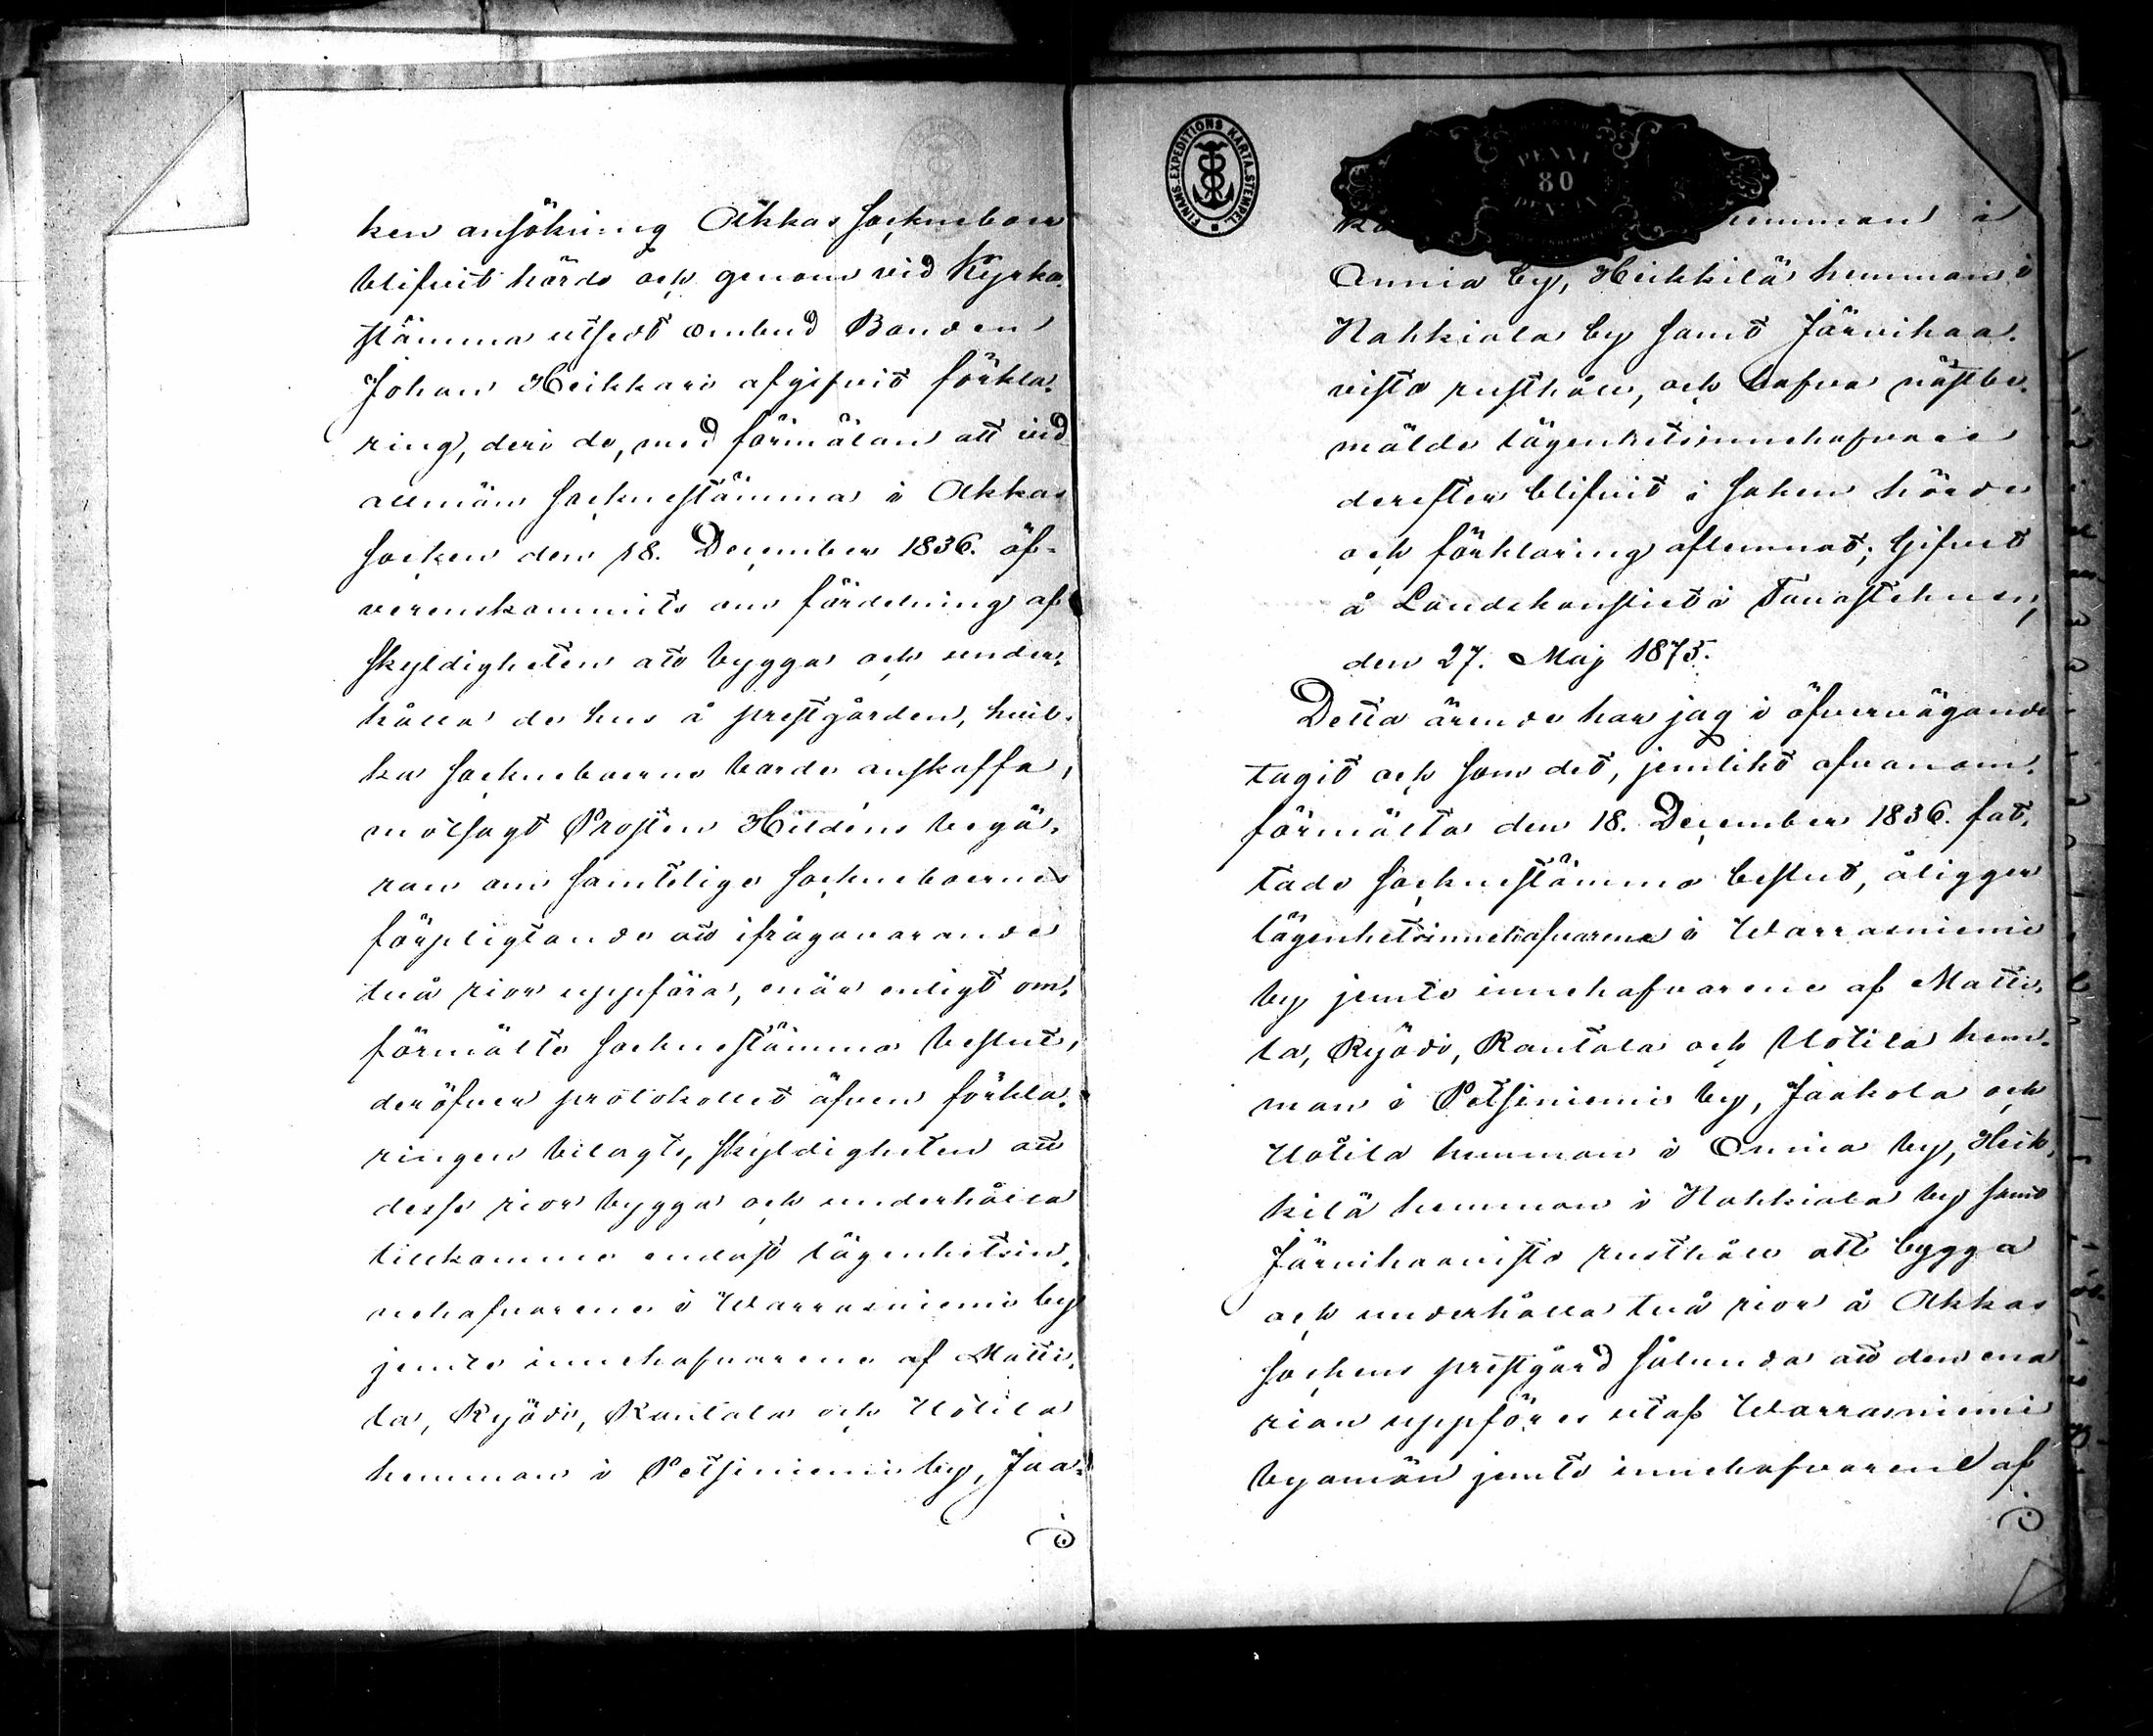 ken ansökning Akkas sockneboer
blifvit hörde och genom vid Kyrko-
stämma utsedt ombud Bonden
Johan Heikkari afgifvit förkla-
ring, deri de, med förmälan att vid
allmän socknestämma i Akkas
socken den 18. December 1836. öf-
verenskommits om fördelning af
skyldigheten att bygga och under-
hålla de hus å prestgården, hvil-
ka sockneboerne borde anskaffa,
motsagt Prosten Hildéns begä-
ran om samtelige sockneboernes
förpligtande att ifrågavarande
två rior uppföra, enär enligt om-
förmälte socknestämmo beslut,
deröfver protokollet äfven förkla-
ringen bilagts, skyldigheten att
desse rior bygga och underhålla
tillkomme endast lägenhetsin-
nehafvarene i Warrasniemi by
jemte innehafvarene af Matti-
la, Kyödi, Rantala och Uotila
hemman i Petsiniemi by, Jaa-
FINANS-EXPEDITIONS KARTA-STEMPEL
PENNI
80
hemman i
Onnia by, Heikkilä hemman i
Nahkiala by samt Järvihaa-
visto rusthåll, och hafva näst be-
mälde lägenhetsinnehafvare
derefter blifvit i saken hörde
och förklaring aflemnat; Gifvet
å Landskansliet i Tavastehus,
den 27. Maj 1875.
Detta ärende har jag i öfvervägande
tagit och som det, jemlikt ofvanom-
förmälta den 18. December 1836. fat-
tade socknestämmo beslut, åligger
lägenhetsinnehafvarene i Warrasniemi
by jemte innehafvarene af Matti-
la, Kyödi, Rantala och Uotila hem-
man i Petsiniemi by, Jaakola och
Uotila hemman i Onnia by, Heik-
kilä hemman i Nahkiala by samt
Järvihaavisto rusthåll att bygga
och underhålla två rior å Akkas
sockens prestgård sålunda att den ena
rian uppföres utaf Warrasniemi
byamän jemte innehafvarene af